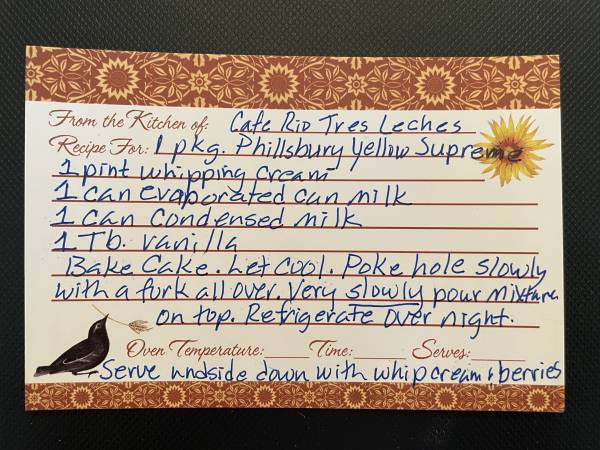 From the Kitchen of: Cafe Rio Tres Leches
Recipe For: 1 pkg. Phillsbury Yellow Supreme
1 pint whipping cream
1 can evaporated can milk
1 can condensed milk
1 Tb. vanilla
Bake Cake. Let cool. Poke hole slowly
with a fork all over. Very slowly pour mixture
on top. Refrigerate over night.
Oven Temperature: Time: Serves:
Serve undside down with whip cream & berries